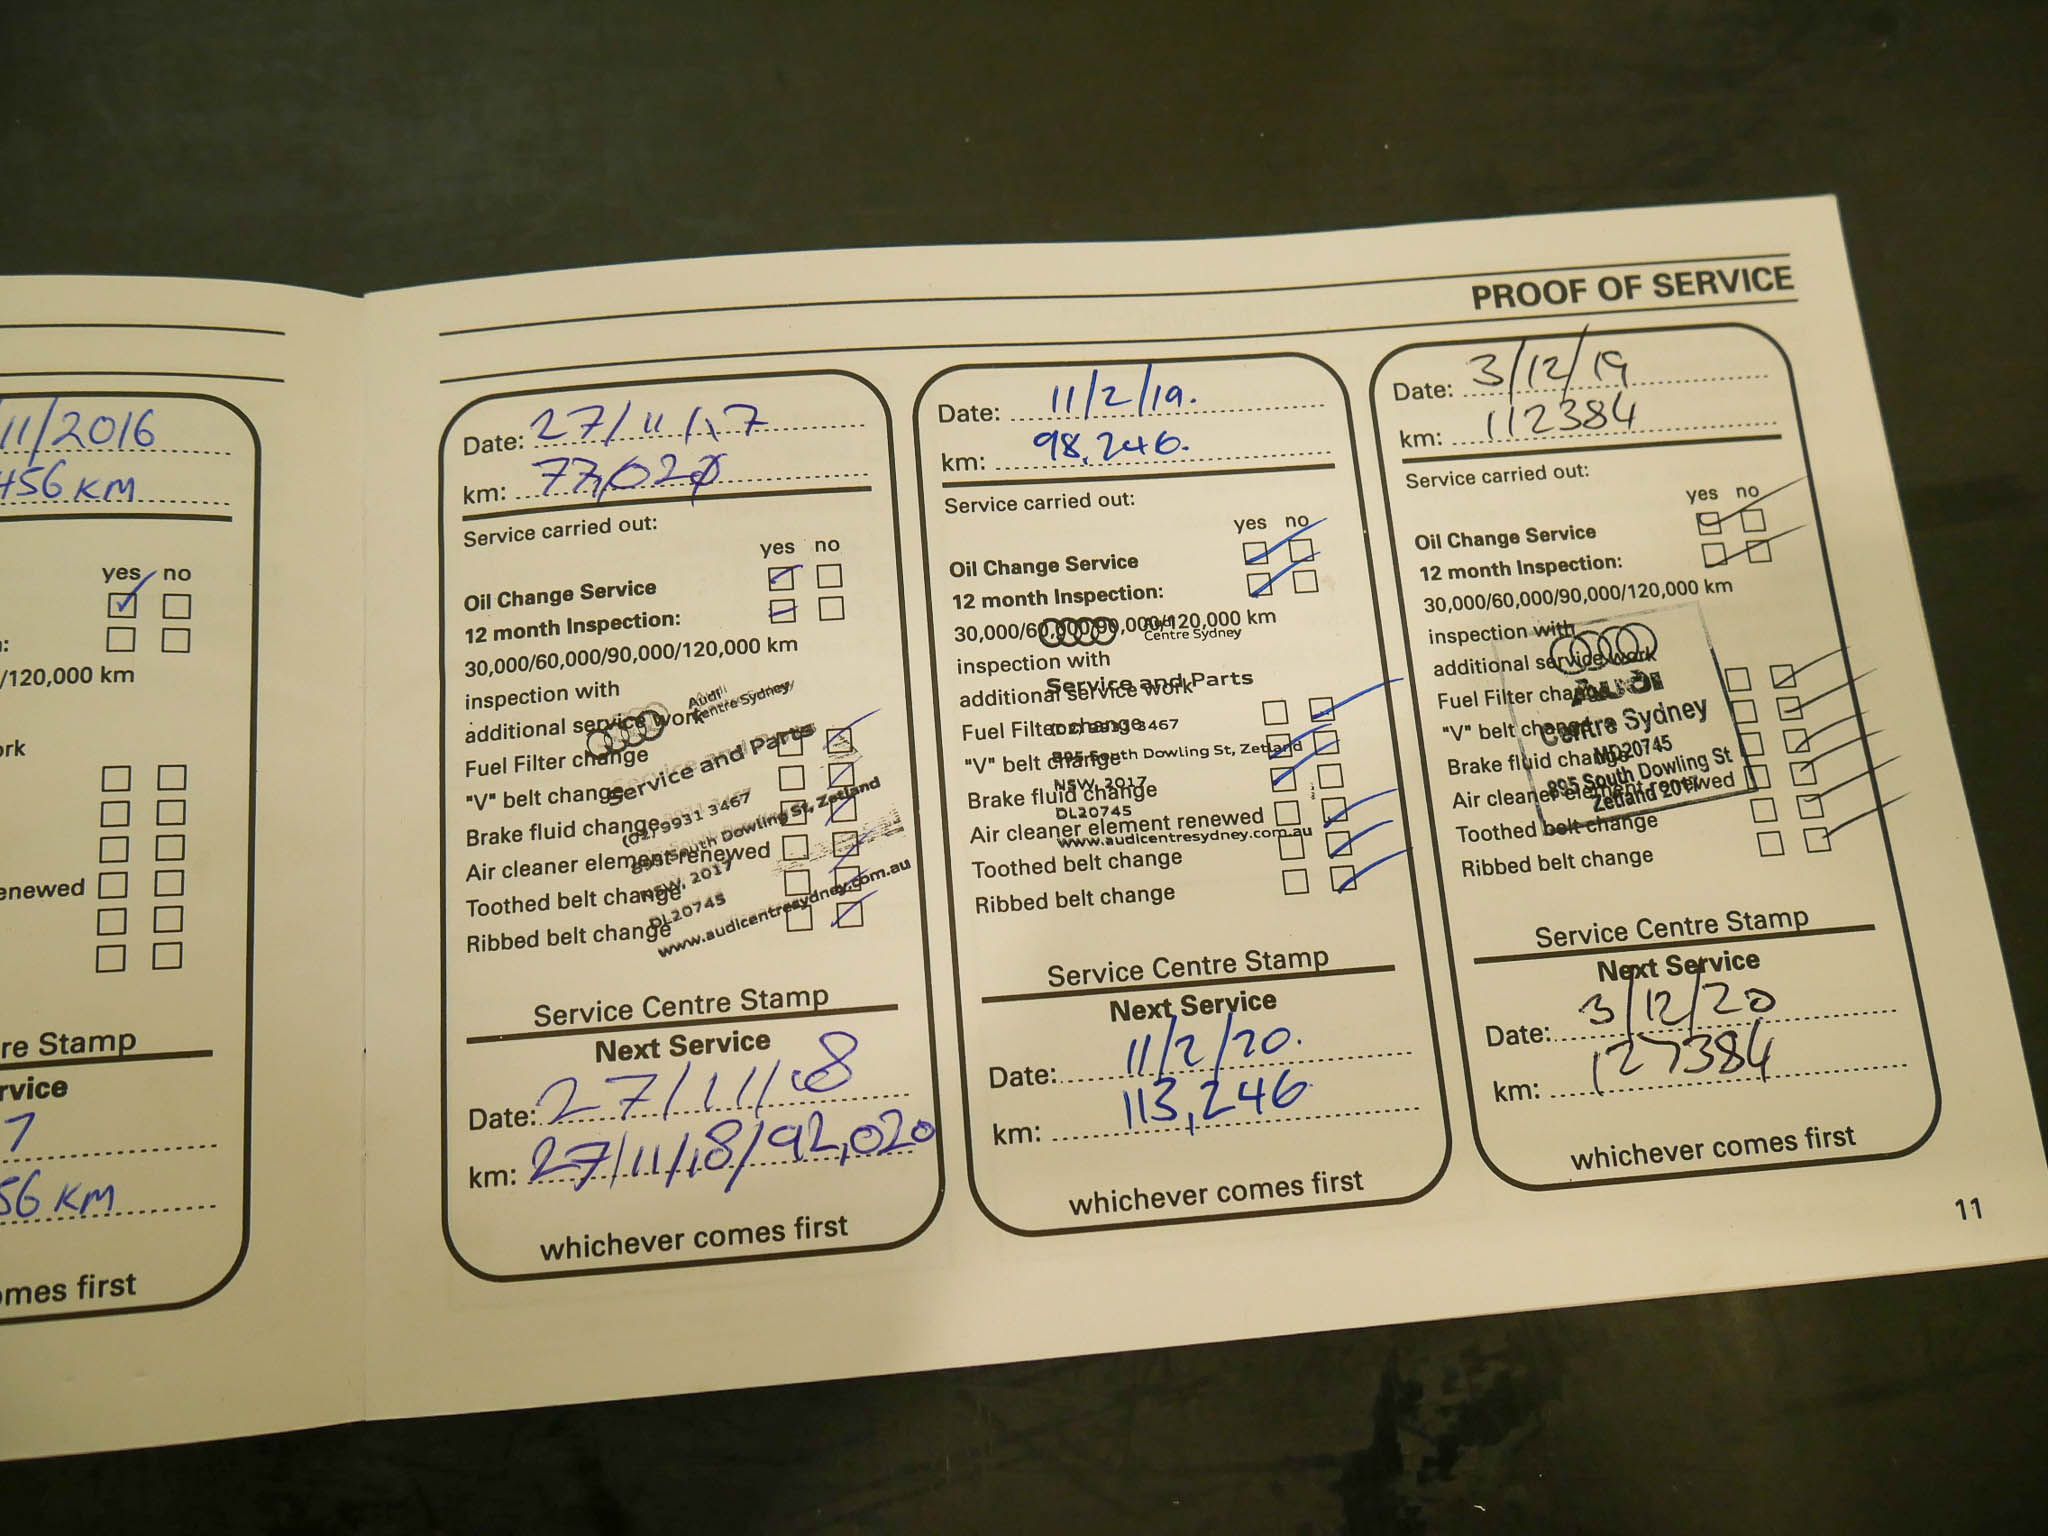 11/2016
456 KM
yes no
/120,000 km
ork
enewed
re Stamp
rvice
7
56 KM
omes first
PROOF OF SERVICE
Date: 27/11/17
km: 77,020
Service carried out:
yes no
Oil Change Service
12 month Inspection:
30,000/60,000/90,000/120,000 km
inspection with
additional service work
Fuel Filter change
"V" belt change
Brake fluid change
Air cleaner element renewed
Toothed belt change
Ribbed belt change
Audi
Centre Sydney
Service and Parts
(02) 9931 3467
895 South Dowling St, Zetland
NSW, 2017
DL20745
www.audicentresydney.com.au
Service Centre Stamp
Next Service
Date: 27/11/18
km: 27/11/18/92,020
whichever comes first
Date: 11/2/19.
km: 98,246.
Service carried out:
yes no
Oil Change Service
12 month Inspection:
30,000/60,000/90,000/120,000 km
inspection with
additional service work
Fuel Filter change
"V" belt change
Brake fluid change
Air cleaner element renewed
Toothed belt change
Ribbed belt change
Audi
Centre Sydney
Service and Parts
(02) 9931 3467
895 South Dowling St, Zetland
NSW, 2017
DL20745
www.audicentresydney.com.au
Service Centre Stamp
Next Service
Date: 11/2/20.
km: 113,246
whichever comes first
Date: 3/12/19
km: 112384
Service carried out:
yes no
Oil Change Service
12 month Inspection:
30,000/60,000/90,000/120,000 km
inspection with
additional service work
Fuel Filter change
"V" belt change
Brake fluid change
Air cleaner element renewed
Toothed belt change
Ribbed belt change
Audi
Centre Sydney
MD20745
895 South Dowling St
Zetland 2017
Service Centre Stamp
Next Service
Date: 3/12/20
km: 127384
whichever comes first
11